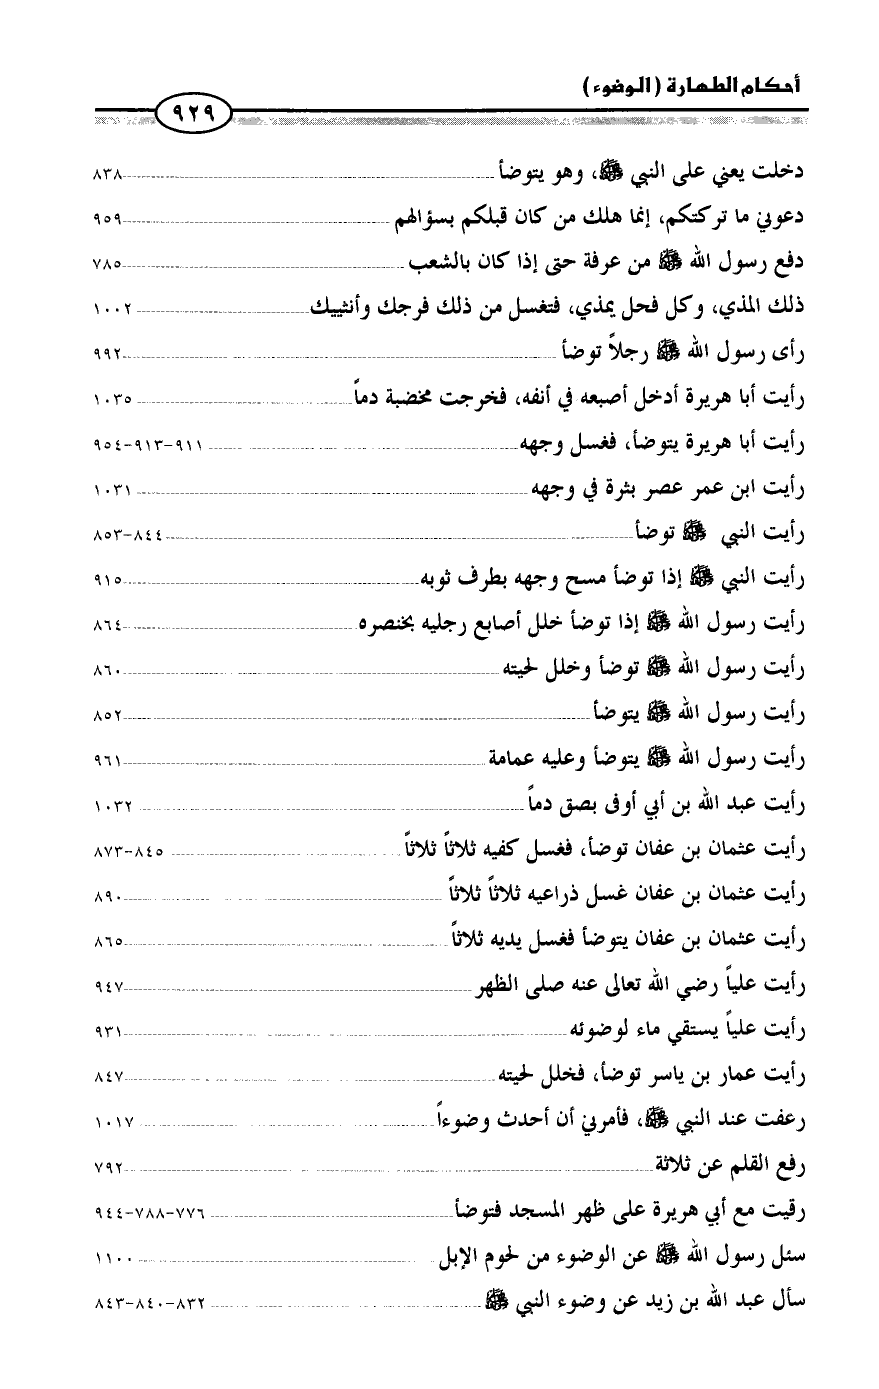 أحكام الطهارة (الوضوء)
٩٢٩
دخلت يعني على النبي ﷺ، وهو يتوضأ ٨٣٨
دعوني ما تركتكم، إنما هلك من كان قبلكم بسؤالهم ٩٥٩
دفع رسول الله ﷺ من عرفة حتى إذا كان بالشعب ٧٨٥
ذلك المذي، وكل فحل يمذي، فتغسل من ذلك فرجك وأنثييك ١٠٠٢
رأى رسول الله ﷺ رجلاً توضأ ٩٩٢
رأيت أبا هريرة أدخل أصبعه في أنفه، فخرجت مخضبة دماً ١٠٣٥
رأيت أبا هريرة يتوضأ، فغسل وجهه ٩١١-٩١٣-٩٥٤
رأيت ابن عمر عصر بثرة في وجهه ١٠٣١
رأيت النبي ﷺ توضأ ٨٤٤-٨٥٣
رأيت النبي ﷺ إذا توضأ مسح وجهه بطرف ثوبه ٩١٥
رأيت رسول الله ﷺ إذا توضأ خلل أصابع رجليه بخنصره ٨٦٤
رأيت رسول الله ﷺ توضأ وخلل لحيته ٨٦٠
رأيت رسول الله ﷺ يتوضأ ٨٥٢
رأيت رسول الله ﷺ يتوضأ وعليه عمامة ٩٦١
رأيت عبد الله بن أبي أوفى بصق دماً ١٠٣٢
رأيت عثمان بن عفان توضأ، فغسل كفيه ثلاثاً ثلاثاً ٨٤٥-٨٧٣
رأيت عثمان بن عفان غسل ذراعيه ثلاثاً ثلاثاً ٨٩٠
رأيت عثمان بن عفان يتوضأ فغسل يديه ثلاثاً ٨٦٥
رأيت علياً رضي الله تعالى عنه صلى الظهر ٩٤٧
رأيت علياً يستقي ماء لوضوئه ٩٣١
رأيت عمار بن ياسر توضأ، فخلل لحيته ٨٤٧
رعفت عند النبي ﷺ، فأمرني أن أحدث وضوءاً ١٠١٧
رفع القلم عن ثلاثة ٧٩٢
رقيت مع أبي هريرة على ظهر المسجد فتوضأ ٧٧٦-٧٨٨-٩٤٤
سئل رسول الله ﷺ عن الوضوء من لحوم الإبل ١١٠٠
سأل عبد الله بن زيد عن وضوء النبي ﷺ ٨٣٢-٨٤٠-٨٤٣